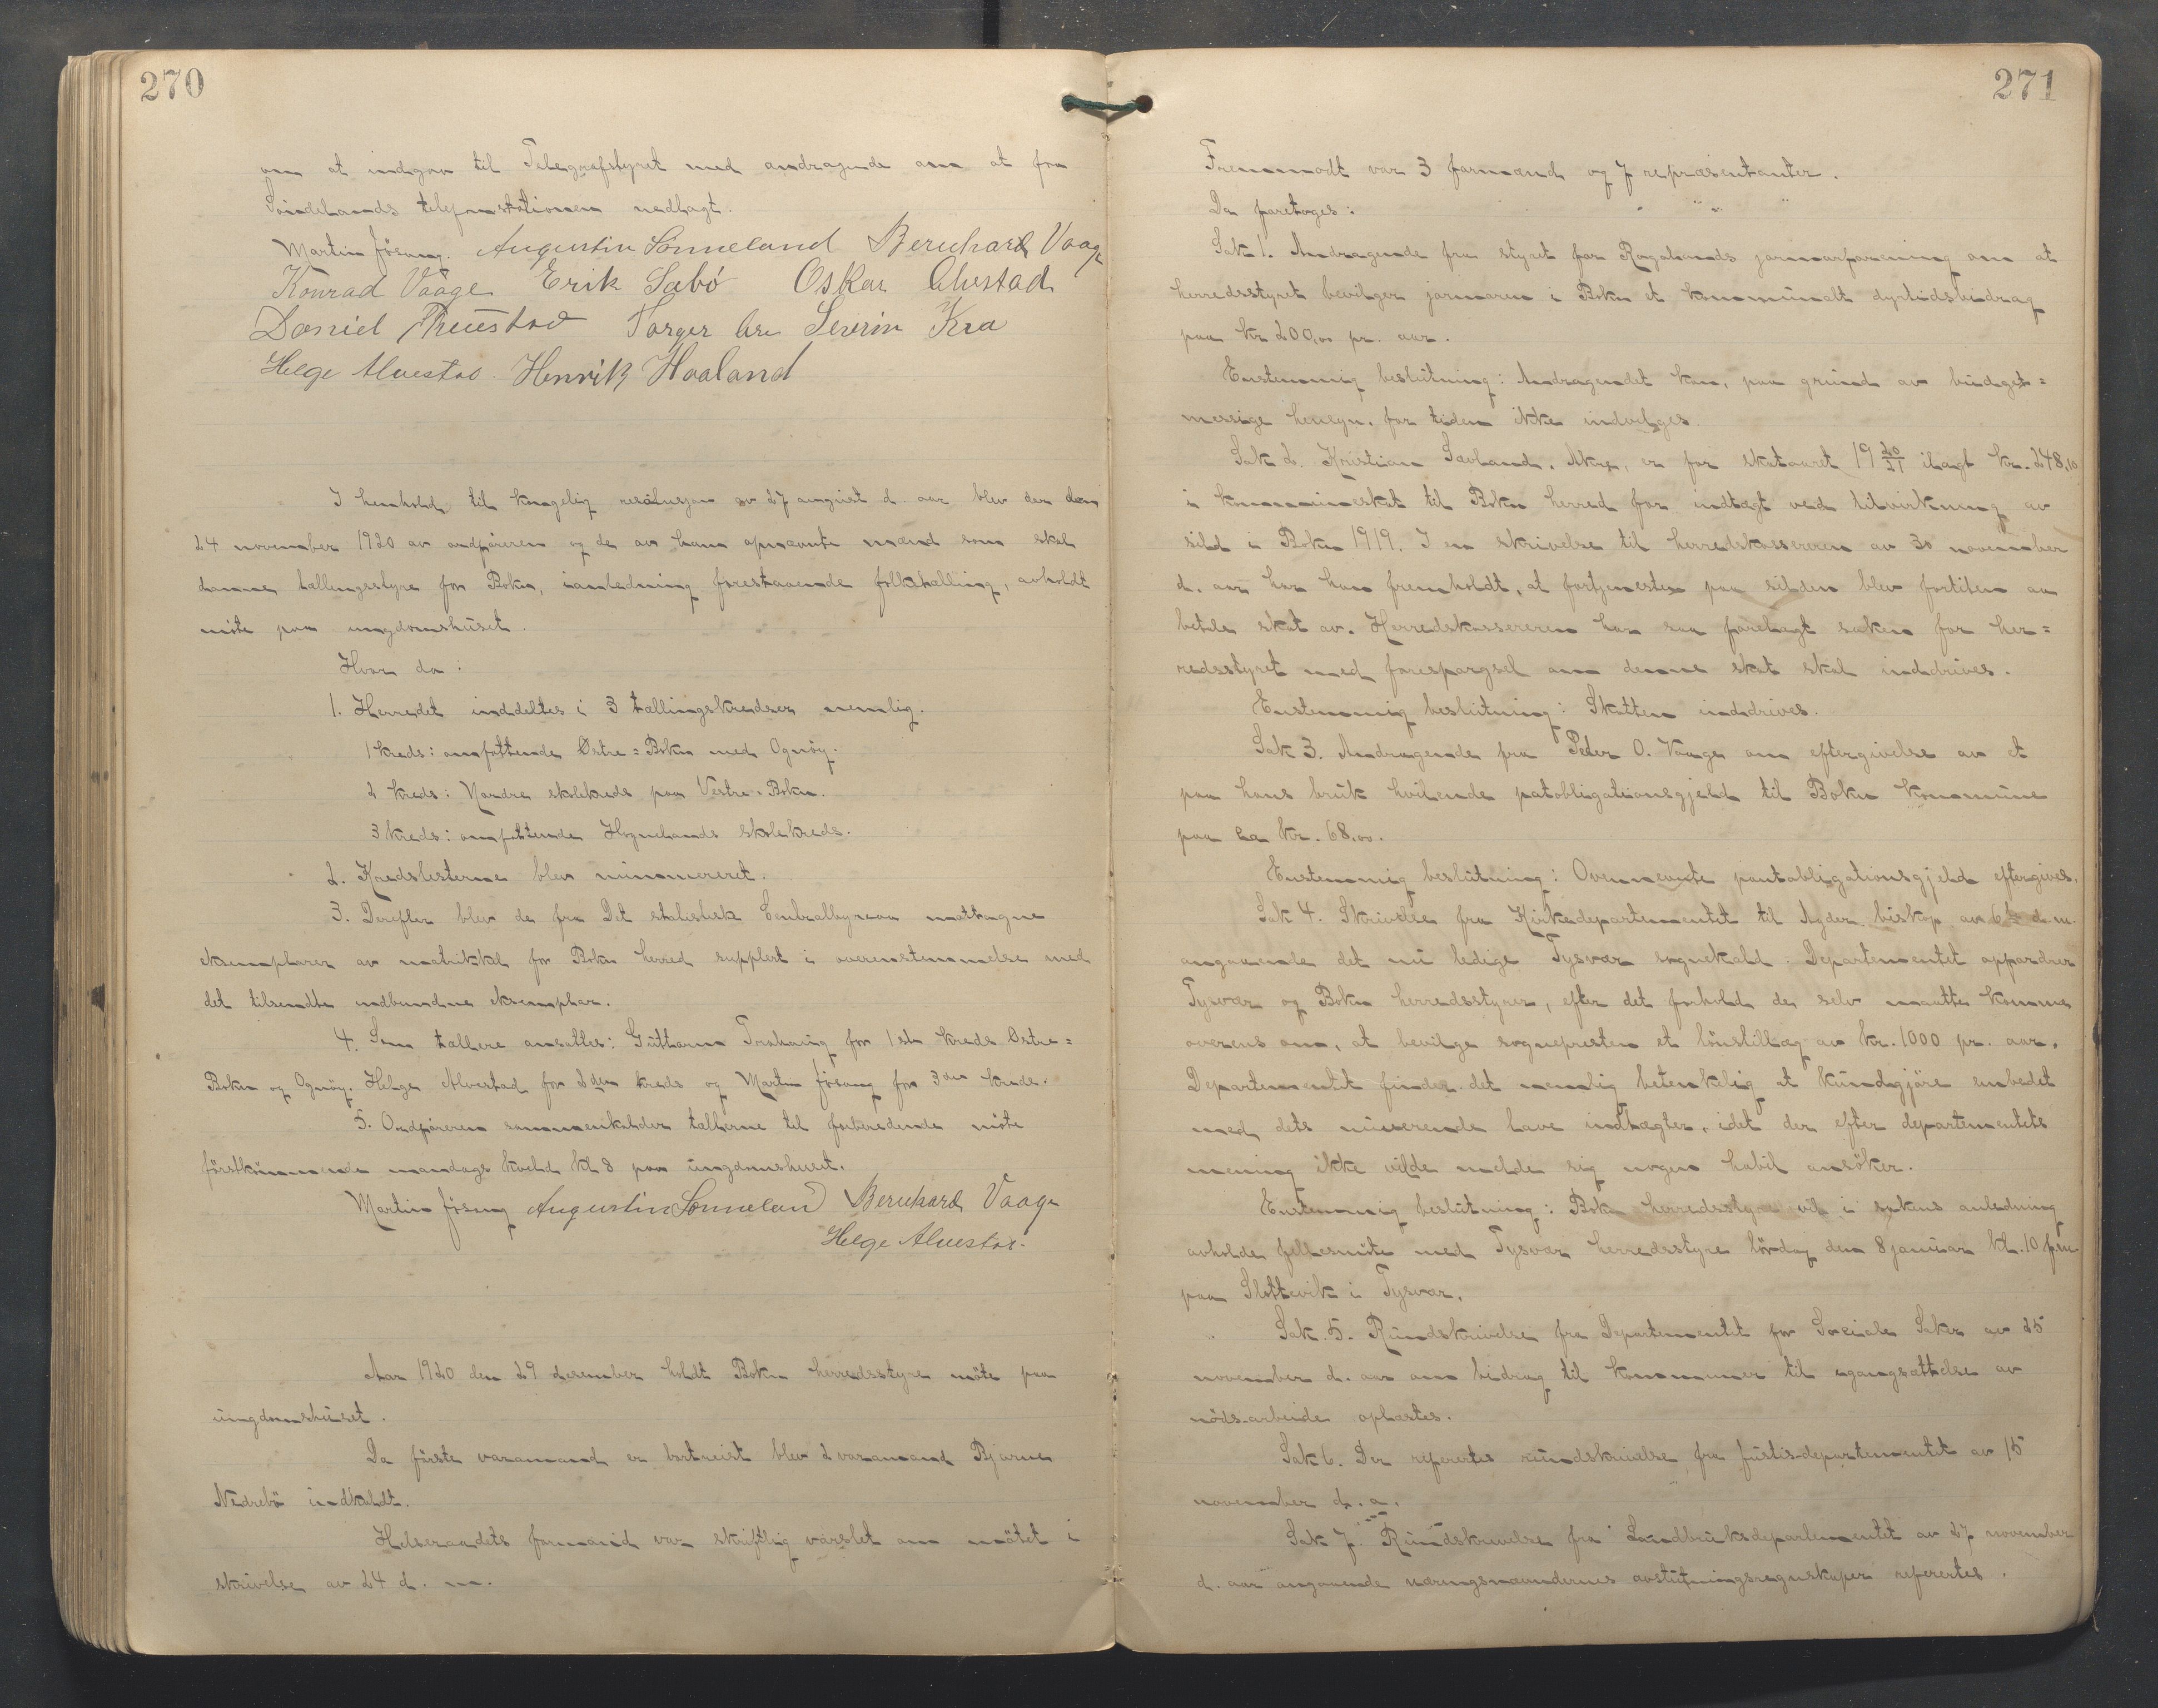 270
om at indgaa til Telegrafstyret med andragende om at faa
Söndelands telefonstationen nedlagt.
Martin Jösang. Augustin Sönneland Bernhard Vaage
Konrad Vaage Erik Sæbö Oskar Alvestad
Daniel Truestad Torger Are Severin Kro
Helge Alvestad. Henrik Haaland
I henhold til kongelig resolusjon av 27 august d. aar blev der den
24 november 1920 av ordföreren og de av ham opnævnte mænd som skal
danne tællingsstyre for Bokn, i anledning forestaaende folketælling, avholdt
möte paa ungdomshuset.
Hvor da:
1. Herredet inddeltes i 3 tællingskredser nemlig.
1 kreds: omfattende Östre=Bokn med Ognöy.
2 kreds: Nordre skolekreds paa Vestre-Bokn.
3 kreds: omfattende Hognelands skolekreds.
2. Kredslisterne blev nummereret.
3. Derefter blev de fra Det statistisk Centralbyraa mottagne
eksemplarer av matrikkel for Bokn herred supplert i overenstemmelse med
det tilsendte indbundne eksemplar.
4. Som tællere ansattes: Guttorm Trosnavåg for 1ste kreds Östre=
Bokn og Ognöy. Helge Alvestad for 2den kreds og Martin Jösang for 3die kreds.
5. Ordföreren sammenkalder tællerne til forberedende möte
förstkommende mandags kveld kl 8 paa ungdomshuset.
Martin Jösang Augustin Sönneland Bernhard Vaage
Helge Alvestad.
Aar 1920 den 29 desember holdt Bokn herredsstyre möte paa
ungdomshuset.
Da förste varamand er bortreist blev 2 varamand Bjarne
Nedrebö indkaldt.
Helseraadets formand var skriftlig varslet om mötet i
skrivelse av 24 d. m.
271
Fremmödt var 3 formænd og 7 repræsentanter.
Da foretoges:
Sak 1. Andragende fra styret for Rogalands jormorforening om at
herredsstyret bevilger jormoren i Bokn et kommunalt dyrtidsbidrag
paa kr 200,00 pr. aar.
Enstemmig beslutning: Andragendet kan, paa grund av budget=
messige hensyn, for tiden ikke indvilges.
Sak 2. Kristian Sævland, Akre, er for skataaret 19 20/21 ilagt kr. 248,10
i kommuneskat til Bokn herred for indtægt ved tilvirkning av
sild i Bokn 1919. I en skrivelse til herredskassereren av 30 november
d. aar har han fremholdt, at fortjenesten paa silden blev forliten aa
betale skat av. Herredskassereren har saa forelagt saken for her=
redsstyret med forespörgsel om denne skat skal inddrives.
Enstemmig beslutning: Skatten inddrives.
Sak 3. Andragende fra Peder O. Vaage om eftergivelse av et
paa hans bruk hvilende patobligationsgjeld til Bokn kommune
paa ca kr. 68.00.
Enstemmig beslutning: Ovennevnte pantobligationsgjeld eftergives.
Sak 4. Skrivelse fra Kirkedepartementet til Agder biskop av 6te d.m.
angaaende det nu ledige Tysvær sognekald. Departementet oppfordrer
Tysvær og Bokn herredsstyrer, efter det forhold de selv maatte komme
overens om, at bevilge sognepresten et lönstillæg av kr. 1000 pr. aar.
Departementet finder det nemlig betenkelig at kundgjöre embedet
med dets nuværende lave indtægter, idet der efter departementets
mening ikke vilde melde sig nogen habil ansöker.
Enstemmig beslutning: Bokn herredsstyre vil i sakens anledning
avholde fellesmöte med Tysvær herredsstyre lördag den 8 januar kl. 10 fm
paa Slottevik i Tysvær.
Sak 5. Rundskrivelse fra Departementet for Sociale Saker av 25
november d. aar om bidrag til kommuner til igangsættelse av
nöds-arbeide oplæstes.
Sak 6. Der refertes rundskrivelse fra justis-departementet av 15
november d. a.
Sak 7. Rundskrivelse fra Landbruksdepartementet av 27 november
d. aar angaaende næringsnævndernes avslutningsregnskaper refertes.